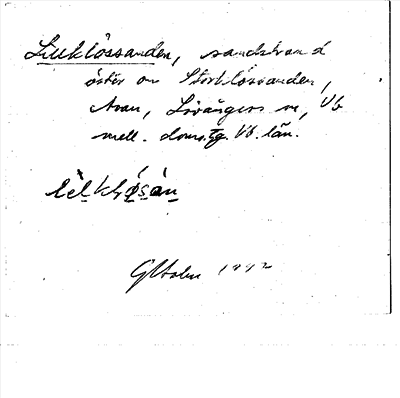 Lillklössanden, sandstrand
öster om Storklössanden,
Avan, Lövångers sn, Vb
mell. doms.tg. Vb. län.
G Holm 1992